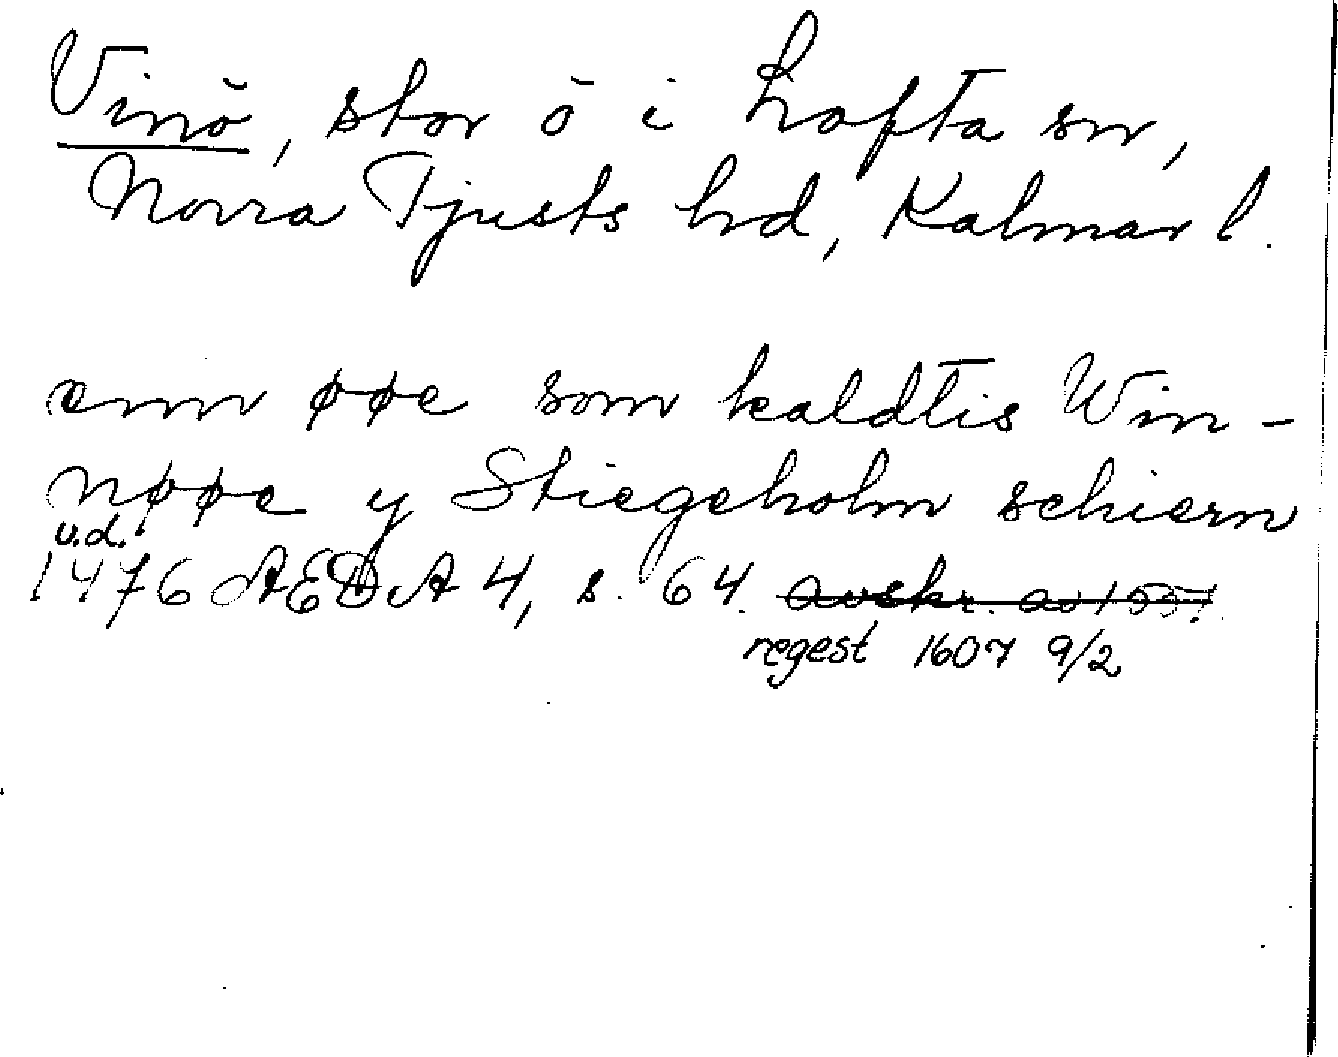 Vinö, stor ö i Lofta sn,
Norra Tjusts hd, Kalmar l.
enn øøe som kaldtis Win-
nøøe y Stiegeholm schiern
u.d.
1476 ÆDA 4, s. 64. avskr. av
regest 1607 9/2